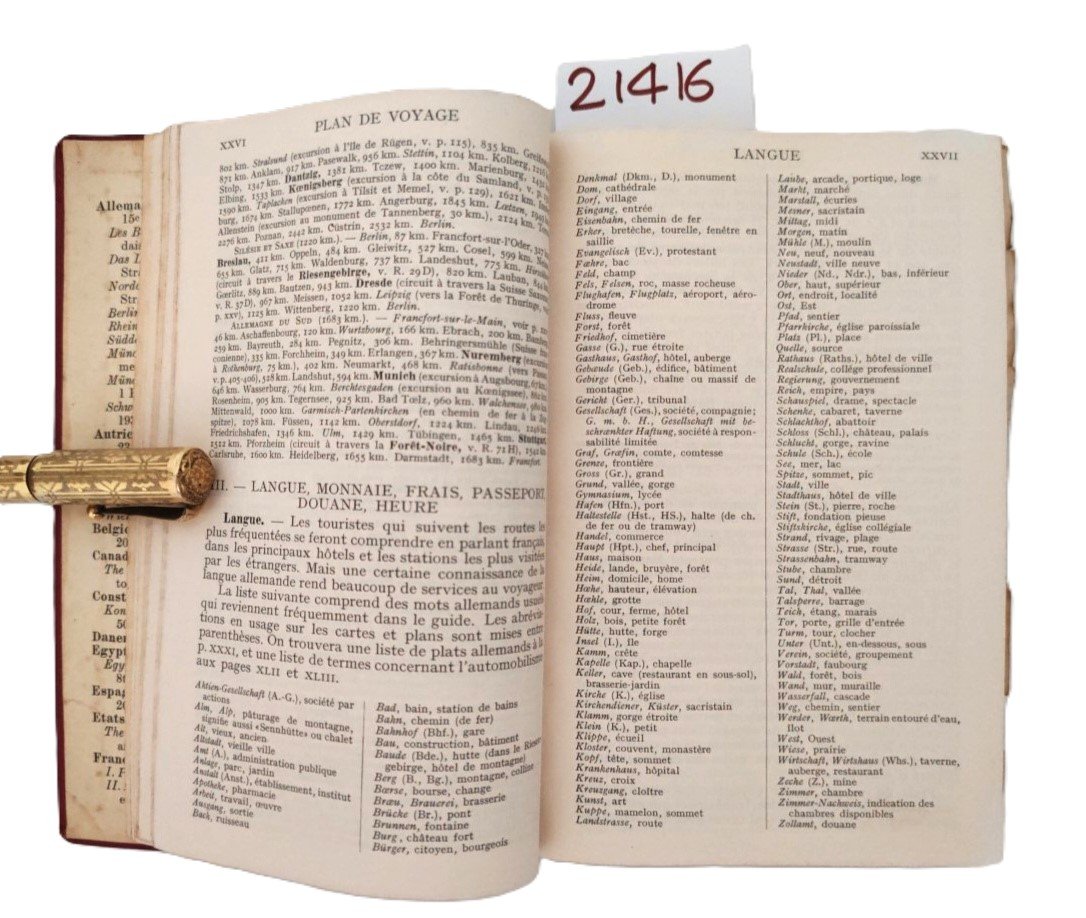 21416
Allema
15e
Les B
dai
Das L
Stra
Norde
Str
Berlin
Rhein
Südde
Münc
me
Münc
1 I
Schw
193
Autric
Belgie
20
Canad
The
to
Const
Kon
50
Danen
Egypt
Egy
80
Espag
20
Etats
The
a
Franc
I. F
II.
e
XXVI
PLAN DE VOYAGE
802 km. Stralsund (excursion à l'île de Rügen, v. p. 115), 835 km. Greifs
871 km. Anklam, 917 km. Pasewalk, 956 km. Stettin, 1104 km. Kolberg,
Stolp, 1347 km. Dantzig, 1381 km. Tczew, 1400 km. Marienburg,
Elbing, 1533 km. Kœnigsberg (excursion à la côte du Samland, v. p.
1590 km. Taplacken (excursion à Tilsit et Memel, v. p. 129), 1621 km.
burg, 1674 km. Stallupœnen, 1772 km. Angerburg, 1845 km. Lœtzen,
Allenstein (excursion au monument de Tannenberg, 30 km.), 2124 km.
2276 km. Poznan, 2442 km. Cüstrin, 2532 km. Berlin.
SILÉSIE ET SAXE (1220 km.). — Berlin, 87 km. Francfort-sur-l'Oder,
Breslau, 421 km. Oppeln, 484 km. Gleiwitz, 527 km. Cosel, 599 km.
655 km. Glatz, 715 km. Waldenburg, 737 km. Landeshut, 775 km.
(circuit à travers le Riesengebirge, v. R. 29 D), 820 km. Lauban,
Gœrlitz, 889 km. Bautzen, 943 km. Dresde (circuit à travers la Suisse
v. R. 37 D), 967 km. Meissen, 1052 km. Leipzig (vers la Forêt de Thuringe,
p. XXV), 1125 km. Wittenberg, 1220 km. Berlin.
ALLEMAGNE DU SUD (1683 km.). — Francfort-sur-le-Main, voir p.
46 km. Aschaffenbourg, 120 km. Wurtzbourg, 166 km. Ebrach, 200 km.
259 km. Bayreuth, 284 km. Pegnitz, 306 km. Behringersmühle (Suisse
conienne), 335 km. Forchheim, 349 km. Erlangen, 367 km. Nuremberg
à Rothenburg, 75 km.), 402 km. Neumarkt, 468 km. Ratisbonne (vers
v. p. 405-406), 528 km. Landshut, 594 km. Munich (excursion à Augsbourg,
646 km. Wasserburg, 764 km. Berchtesgaden (excursion au Kœnigssee),
Rosenheim, 905 km. Tegernsee, 925 km. Bad Tœlz, 960 km. Walchensee,
Mittenwald, 1000 km. Garmisch-Partenkirchen (en chemin de fer à la
spitze), 1078 km. Füssen, 1142 km. Oberstdorf, 1224 km. Lindau,
Friedrichshafen, 1346 km. Ulm, 1429 km. Tübingen, 1465 km. Stuttgart,
1512 km. Pforzheim (circuit à travers la Forêt-Noire, v. R. 71 H),
Carlsruhe, 1600 km. Heidelberg, 1655 km. Darmstadt, 1683 km. Francfort.
III. — LANGUE, MONNAIE, FRAIS, PASSEPORT,
DOUANE, HEURE
Langue. — Les touristes qui suivent les routes les
plus fréquentées se feront comprendre en parlant français
dans les principaux hôtels et les stations les plus visitées
par les étrangers. Mais une certaine connaissance de la
langue allemande rend beaucoup de services au voyageur.
La liste suivante comprend des mots allemands usuels
qui reviennent fréquemment dans le guide. Les abrévia-
tions en usage sur les cartes et plans sont mises entre
parenthèses. On trouvera une liste de plats allemands à la
p. XXXI, et une liste de termes concernant l'automobilisme
aux pages XLII et XLIII.
Aktien-Gesellschaft (A.-G.), société par
actions
Alm, Alp, pâturage de montagne,
signifie aussi «Sennhütte» ou chalet
Alt, vieux, ancien
Altstadt, vieille ville
Amt (A.), administration publique
Anlage, parc, jardin
Anstalt (Anst.), établissement, institut
Apotheke, pharmacie
Arbeit, travail, œuvre
Ausgang, sortie
Bach, ruisseau
Bad, bain, station de bains
Bahn, chemin (de fer)
Bahnhof (Bhf.), gare
Bau, construction, bâtiment
Baude (Bde.), hutte (dans le Riesen-
gebirge, hôtel de montagne)
Berg (B., Bg.), montagne, colline
Bœrse, bourse, change
Bræu, Brauerei, brasserie
Brücke (Br.), pont
Brunnen, fontaine
Burg, château fort
Bürger, citoyen, bourgeois
LANGUE
XXVII
Denkmal (Dkm., D.), monument
Dom, cathédrale
Dorf, village
Eingang, entrée
Eisenbahn, chemin de fer
Erker, bretèche, tourelle, fenêtre en
saillie
Evangelisch (Ev.), protestant
Fæhre, bac
Feld, champ
Fels, Felsen, roc, masse rocheuse
Flughafen, Flugplatz, aéroport, aéro-
drome
Fluss, fleuve
Forst, forêt
Friedhof, cimetière
Gasse (G.), rue étroite
Gasthaus, Gasthof, hôtel, auberge
Gebæude (Geb.), édifice, bâtiment
Gebirge (Geb.), chaîne ou massif de
montagne
Gericht (Ger.), tribunal
Gesellschaft (Ges.), société, compagnie;
G. m. b. H., Gesellschaft mit be-
schrænkter Haftung, société à respon-
sabilité limitée
Graf, Græfin, comte, comtesse
Grenze, frontière
Gross (Gr.), grand
Grund, vallée, gorge
Gymnasium, lycée
Hafen (Hfn.), port
Haltestelle (Hst., HS.), halte (de ch.
de fer ou de tramway)
Handel, commerce
Haupt (Hpt.), chef, principal
Haus, maison
Heide, lande, bruyère, forêt
Heim, domicile, home
Hœhe, hauteur, élévation
Hœhle, grotte
Hof, cour, ferme, hôtel
Holz, bois, petite forêt
Hütte, hutte, forge
Insel (I.), île
Kamm, crête
Kapelle (Kap.), chapelle
Keller, cave (restaurant en sous-sol),
brasserie-jardin
Kirche (K.), église
Kirchendiener, Küster, sacristain
Klamm, gorge étroite
Klein (K.), petit
Klippe, écueil
Kloster, couvent, monastère
Kopf, tête, sommet
Krankenhaus, hôpital
Kreuz, croix
Kreuzgang, cloître
Kunst, art
Kuppe, mamelon, sommet
Landstrasse, route
Laube, arcade, portique, loge
Markt, marché
Marstall, écuries
Mesner, sacristain
Mittag, midi
Morgen, matin
Mühle (M.), moulin
Neu, neuf, nouveau
Neustadt, ville neuve
Nieder (Nd., Ndr.), bas, inférieur
Ober, haut, supérieur
Ort, endroit, localité
Ost, Est
Pfad, sentier
Pfarrkirche, église paroissiale
Platz (Pl.), place
Quelle, source
Rathaus (Raths.), hôtel de ville
Realschule, collège professionnel
Regierung, gouvernement
Reich, empire, pays
Schauspiel, drame, spectacle
Schenke, cabaret, taverne
Schlachthof, abattoir
Schloss (Schl.), château, palais
Schlucht, gorge, ravine
Schule (Sch.), école
See, mer, lac
Spitze, sommet, pic
Stadt, ville
Stadthaus, hôtel de ville
Stein (St.), pierre, roche
Stift, fondation pieuse
Stiftskirche, église collégiale
Strand, rivage, plage
Strasse (Str.), rue, route
Strassenbahn, tramway
Stube, chambre
Sund, détroit
Tal, Thal, vallée
Talsperre, barrage
Teich, étang, marais
Tor, porte, grille d'entrée
Turm, tour, clocher
Unter (Unt.), en-dessous, sous
Verein, société, groupement
Vorstadt, faubourg
Wald, forêt, bois
Wand, mur, muraille
Wasserfall, cascade
Weg, chemin, sentier
Werder, Wœrth, terrain entouré d'eau,
îlot
West, Ouest
Wiese, prairie
Wirtschaft, Wirtshaus (Whs.), taverne,
auberge, restaurant
Zeche (Z.), mine
Zimmer, chambre
Zimmer-Nachweis, indication des
chambres disponibles
Zollamt, douane